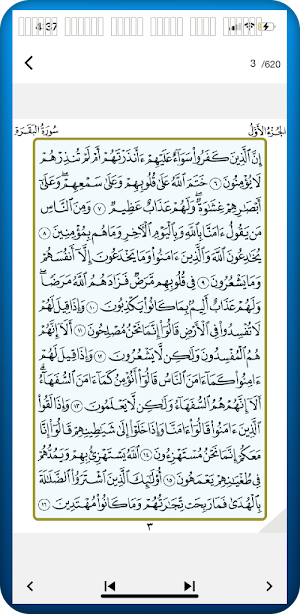 4:37
3 /620
سُورَةُ البَقَرَةِ الجُزءُ الأَوَّلُ
إِنَّ ٱلَّذِينَ كَفَرُوا۟ سَوَآءٌ عَلَيْهِمْ ءَأَنذَرْتَهُمْ أَمْ لَمْ تُنذِرْهُمْ
لَا يُؤْمِنُونَ ٦ خَتَمَ ٱللَّهُ عَلَىٰ قُلُوبِهِمْ وَعَلَىٰ سَمْعِهِمْ ۖ وَعَلَىٰٓ
أَبْصَـٰرِهِمْ غِشَـٰوَةٌ ۖ وَلَهُمْ عَذَابٌ عَظِيمٌ ٧ وَمِنَ ٱلنَّاسِ
مَن يَقُولُ ءَامَنَّا بِٱللَّهِ وَبِٱلْيَوْمِ ٱلْـَٔاخِرِ وَمَا هُم بِمُؤْمِنِينَ ٨
يُخَـٰدِعُونَ ٱللَّهَ وَٱلَّذِينَ ءَامَنُوا۟ وَمَا يَخْدَعُونَ إِلَّآ أَنفُسَهُمْ
وَمَا يَشْعُرُونَ ٩ فِى قُلُوبِهِم مَّرَضٌ فَزَادَهُمُ ٱللَّهُ مَرَضًا ۖ
وَلَهُمْ عَذَابٌ أَلِيمٌۢ بِمَا كَانُوا۟ يَكْذِبُونَ ١٠ وَإِذَا قِيلَ لَهُمْ
لَا تُفْسِدُوا۟ فِى ٱلْأَرْضِ قَالُوٓا۟ إِنَّمَا نَحْنُ مُصْلِحُونَ ١١ أَلَآ إِنَّهُمْ
هُمُ ٱلْمُفْسِدُونَ وَلَـٰكِن لَّا يَشْعُرُونَ ١٢ وَإِذَا قِيلَ لَهُمْ
ءَامِنُوا۟ كَمَآ ءَامَنَ ٱلنَّاسُ قَالُوٓا۟ أَنُؤْمِنُ كَمَآ ءَامَنَ ٱلسُّفَهَآءُ ۗ
أَلَآ إِنَّهُمْ هُمُ ٱلسُّفَهَآءُ وَلَـٰكِن لَّا يَعْلَمُونَ ١٣ وَإِذَا لَقُوا۟
ٱلَّذِينَ ءَامَنُوا۟ قَالُوٓا۟ ءَامَنَّا وَإِذَا خَلَوْا۟ إِلَىٰ شَيَـٰطِينِهِمْ قَالُوٓا۟ إِنَّا
مَعَكُمْ إِنَّمَا نَحْنُ مُسْتَهْزِءُونَ ١٤ ٱللَّهُ يَسْتَهْزِئُ بِهِمْ وَيَمُدُّهُمْ
فِى طُغْيَـٰنِهِمْ يَعْمَهُونَ ١٥ أُو۟لَـٰٓئِكَ ٱلَّذِينَ ٱشْتَرَوُا۟ ٱلضَّلَـٰلَةَ
بِٱلْهُدَىٰ فَمَا رَبِحَت تِّجَـٰرَتُهُمْ وَمَا كَانُوا۟ مُهْتَدِينَ ١٦
٣